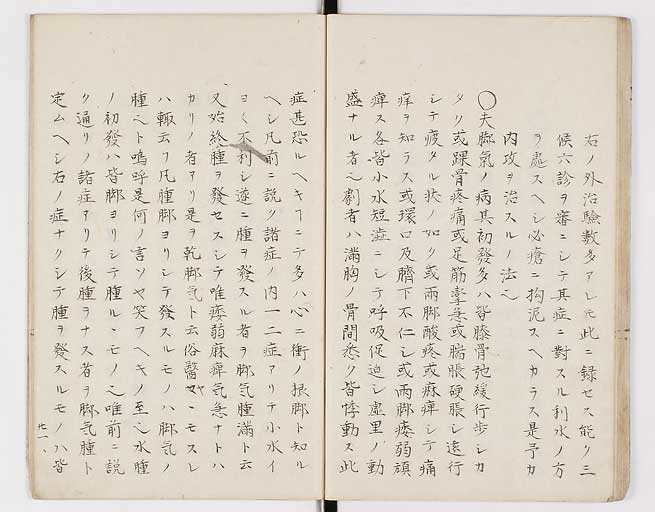 右ノ外治驗數多アレ𪜈此ニ録セス能ク三
候六診ヲ審ニシテ其症ニ對スル利水ノ方
ヲ處スヘシ必瘡ニ拘泥スヘカラス是予カ
内攻ヲ治スルノ法也
○夫脚氣ノ病其初發多ハ皆膝骨弛緩行歩シカ
タク或踝骨疼痛或足筋攣急或腨脹硬脹シ遠行
シテ疲タル状ノ如ク或兩脚酸疼或麻痺シテ痛
痒ヲ知ラス或環口及臍下不仁シ或両脚痿弱頑
痺ス各皆小水短澁ニシテ呼吸促迫シ虚里ノ動
盛ナル者也劇者ハ滿胸ノ骨間悉ク皆悸動ス此
症甚恐ルヘキフニテ多ハ心ニ衝ノ根脚ト知ル
ヘシ凡前ニ説ク諸症ノ内一二症アリテ小水イ
ヨ〱不利シ遂ニ腫ヲ發スル者ヲ脚気腫滿ト云
又始終腫ヲ發セスシテ唯痿弱麻痺気急ナトハ
カリノ者アリ是ヲ乾脚気ト云俗醫ヤヽモスレ
ハ輙云フ凡腫脚ヨリシテ發スルモノハ脚気ノ
腫也ト嗚呼是何ノ言ソヤ笑フヘキノ至也水腫
ノ初發ハ皆脚ヨリシテ腫ルヽモノ也唯前ニ説
ク通リノ諸症アリテ後腫ヲナス者ヲ脚気腫ト
定ムヘシ右ノ症ナクシテ腫ヲ發スルモノハ皆
廿一